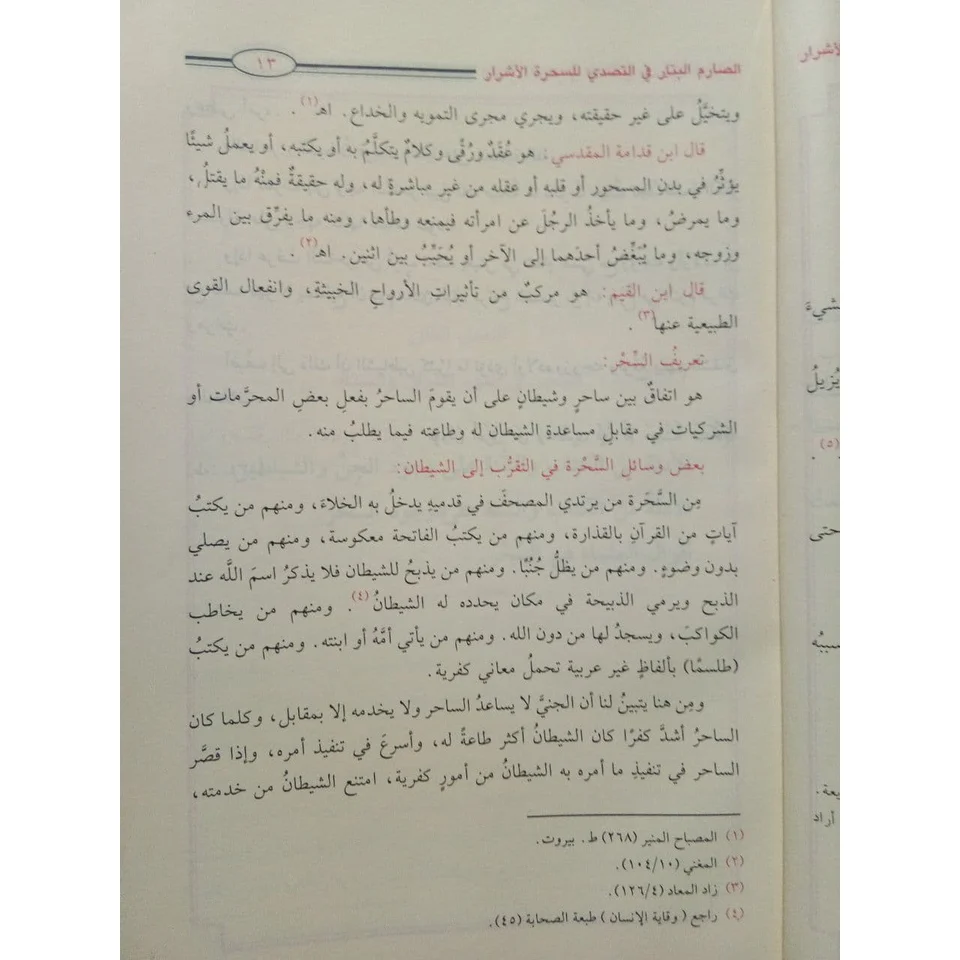 الصارم البتار في التصدي للسحرة الأشرار
١٣
ويتخيَّلُ على غير حقيقته، ويجري مجرى التمويه والخداع. اهـ(١).
قال ابن قدامة المقدسي: هو عُقَدٌ ورُقًى وكلامٌ يتكلَّمُ به أو يكتبه، أو يعملُ شيئًا
يؤثِّرُ في بدنِ المسحور أو قلبه أو عقله من غير مباشرةٍ له، وله حقيقةٌ فمنْهُ ما يقتلُ،
وما يمرضُ، وما يأخذُ الرجُلَ عن امرأته فيمنعه وطأها، ومنه ما يفرِّق بين المرء
وزوجه، وما يُبَغِّضُ أحدَهما إلى الآخر أو يُحَبِّبُ بين اثنين. اهـ(٢).
قال ابن القيم: هو مركبٌ من تأثيراتِ الأرواحِ الخبيثةِ، وانفعال القوى
الطبيعية عنها(٣).
تعريفُ السِّحْرِ:
هو اتفاقٌ بين ساحرٍ وشيطانٍ على أن يقومَ الساحرُ بفعلِ بعضِ المحرَّمات أو
الشركيات في مقابلِ مساعدةِ الشيطان له وطاعته فيما يطلبُ منه.
بعض وسائلِ السَّحَرة في التقرُّب إلى الشيطان:
مِن السَّحَرة من يرتدي المصحفَ في قدميهِ يدخلُ به الخلاءَ، ومنهم من يكتبُ
آياتٍ من القرآنِ بالقذارة، ومنهم من يكتبُ الفاتحة معكوسة، ومنهم من يصلي
بدون وضوءٍ. ومنهم من يظلُّ جُنُبًا. ومنهم من يذبحُ للشيطان فلا يذكرُ اسمَ اللَّه عند
الذبح ويرمي الذبيحة في مكان يحدده له الشيطانُ(٤). ومنهم من يخاطب
الكواكبَ، ويسجدُ لها من دون الله. ومنهم من يأتي أمَّهُ أو ابنته. ومنهم من يكتبُ
(طلسمًا) بألفاظٍ غير عربية تحملُ معاني كفرية.
ومِن هنا يتبينُ لنا أن الجنيَّ لا يساعدُ الساحر ولا يخدمه إلا بمقابل، وكلما كان
الساحرُ أشدَّ كفرًا كان الشيطانُ أكثر طاعةً له، وأسرعَ في تنفيذ أمره، وإذا قصَّر
الساحر في تنفيذِ ما أمره به الشيطانُ من أمورٍ كفرية، امتنع الشيطانُ من خدمته،
(١) المصباح المنير (٢٦٨) ط. بيروت.
(٢) المغني (١٠/ ١٠٤).
(٣) زاد المعاد (٤/ ١٢٦).
(٤) راجع (وقاية الإنسان) طبعة الصحابة (٤٥).
الأشرار
يُزيلُ
(٥).
حتى
أراد